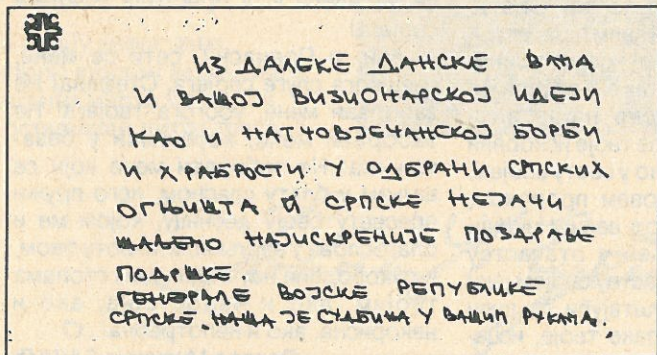 ИЗ ДАЛЕКЕ ДАНСКЕ ВАМА
И ВАШОЈ ВИЗИОНАРСКОЈ ИДЕЈИ
КАО И НАТЧОВЈЕЧАНСКОЈ БОРБИ
И ХРАБРОСТИ У ОДБРАНИ СРПСКИХ
ОГЊИШТА И СРПСКЕ НЕЈАЧИ
ШАЉЕМО НАЈИСКРЕНИЈЕ ПОЗДРАВЕ
ПОДРШКЕ
ГЕНЕРАЛЕ ВОЈСКЕ РЕПУБЛИКЕ
СРПСКЕ, НАША ЈЕ СУДБИНА У ВАШИМ РУКАМА.